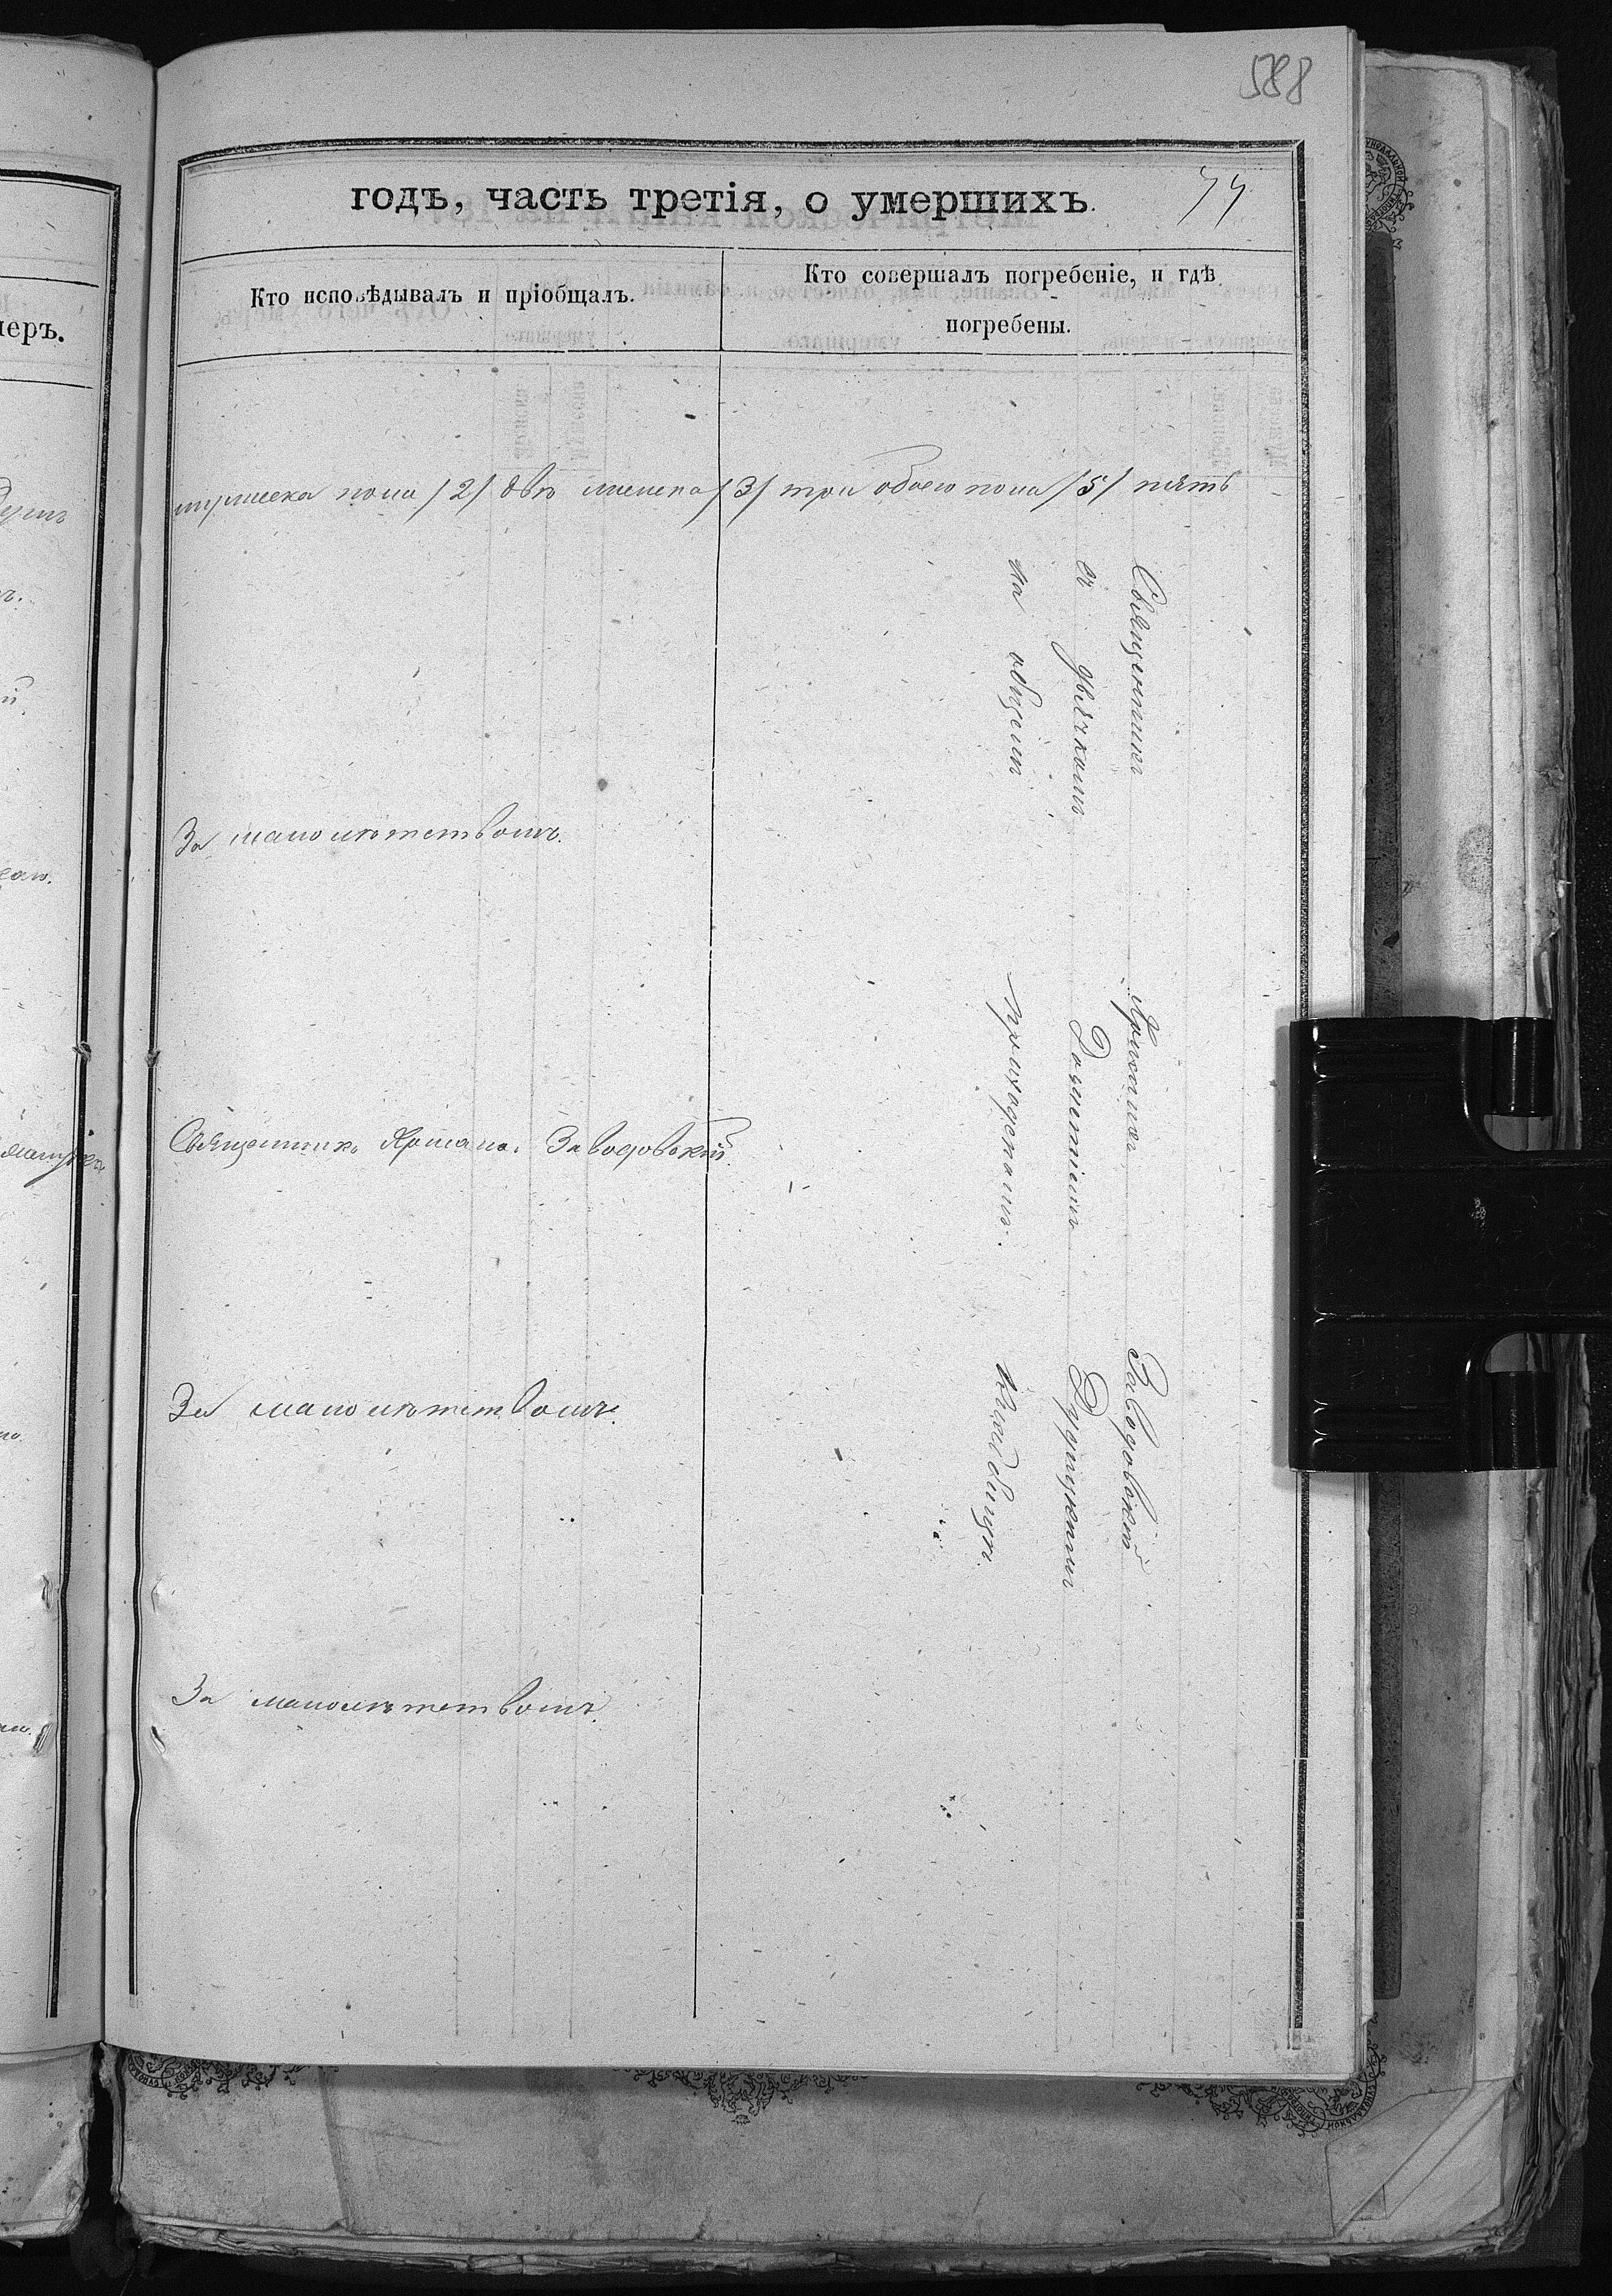 588
годъ, часть третія, о умершихъ.
Кто исповѣдывалъ и пріобщалъ.
Кто совершалъ погребеніе, и гдѣ
погребены.
меръ.
мужеска пола /2/ два женска /3/ три обоего пола /5/ пять
За малолѣтствомъ.
Священникъ Заводовскій.
За малолѣтствомъ.
За малолѣтствомъ.
Священникъ Заводовскій
съ дьячкомъ
на общемъ приходскомъ кладбищѣ.